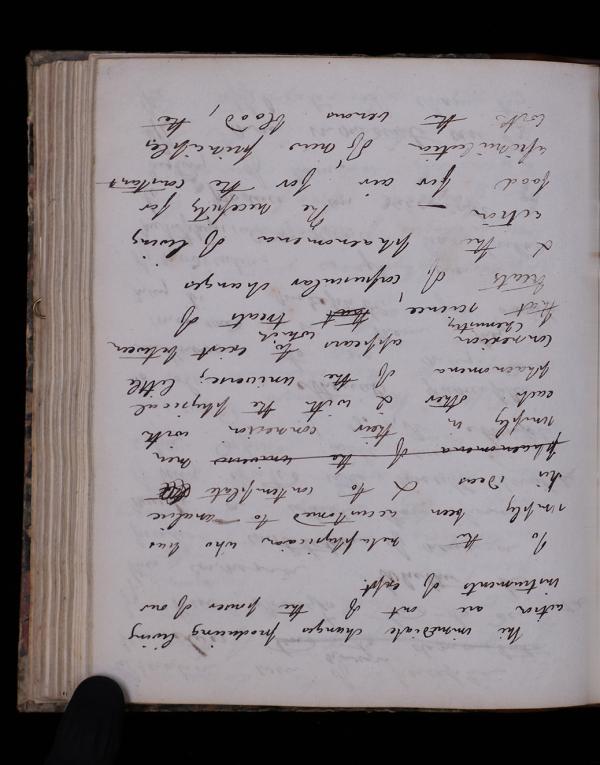 The immediate changes producing living
action are out of the power of our
instruments of expt.
To the metaphysician who has
simply been accustomed to analise
his ideas & to contemplate
phaenomena of the universe men
simply in their connexion with
each other & with the physical
phaenomena of the universe; little
connexion appears to exist between
Chemistry which
that science, that treats of
treats of corpuscular changes
& the phaenomena of living
action — The necessity for
food for air, for the constant
assimilation of new principles
with the venous blood, the